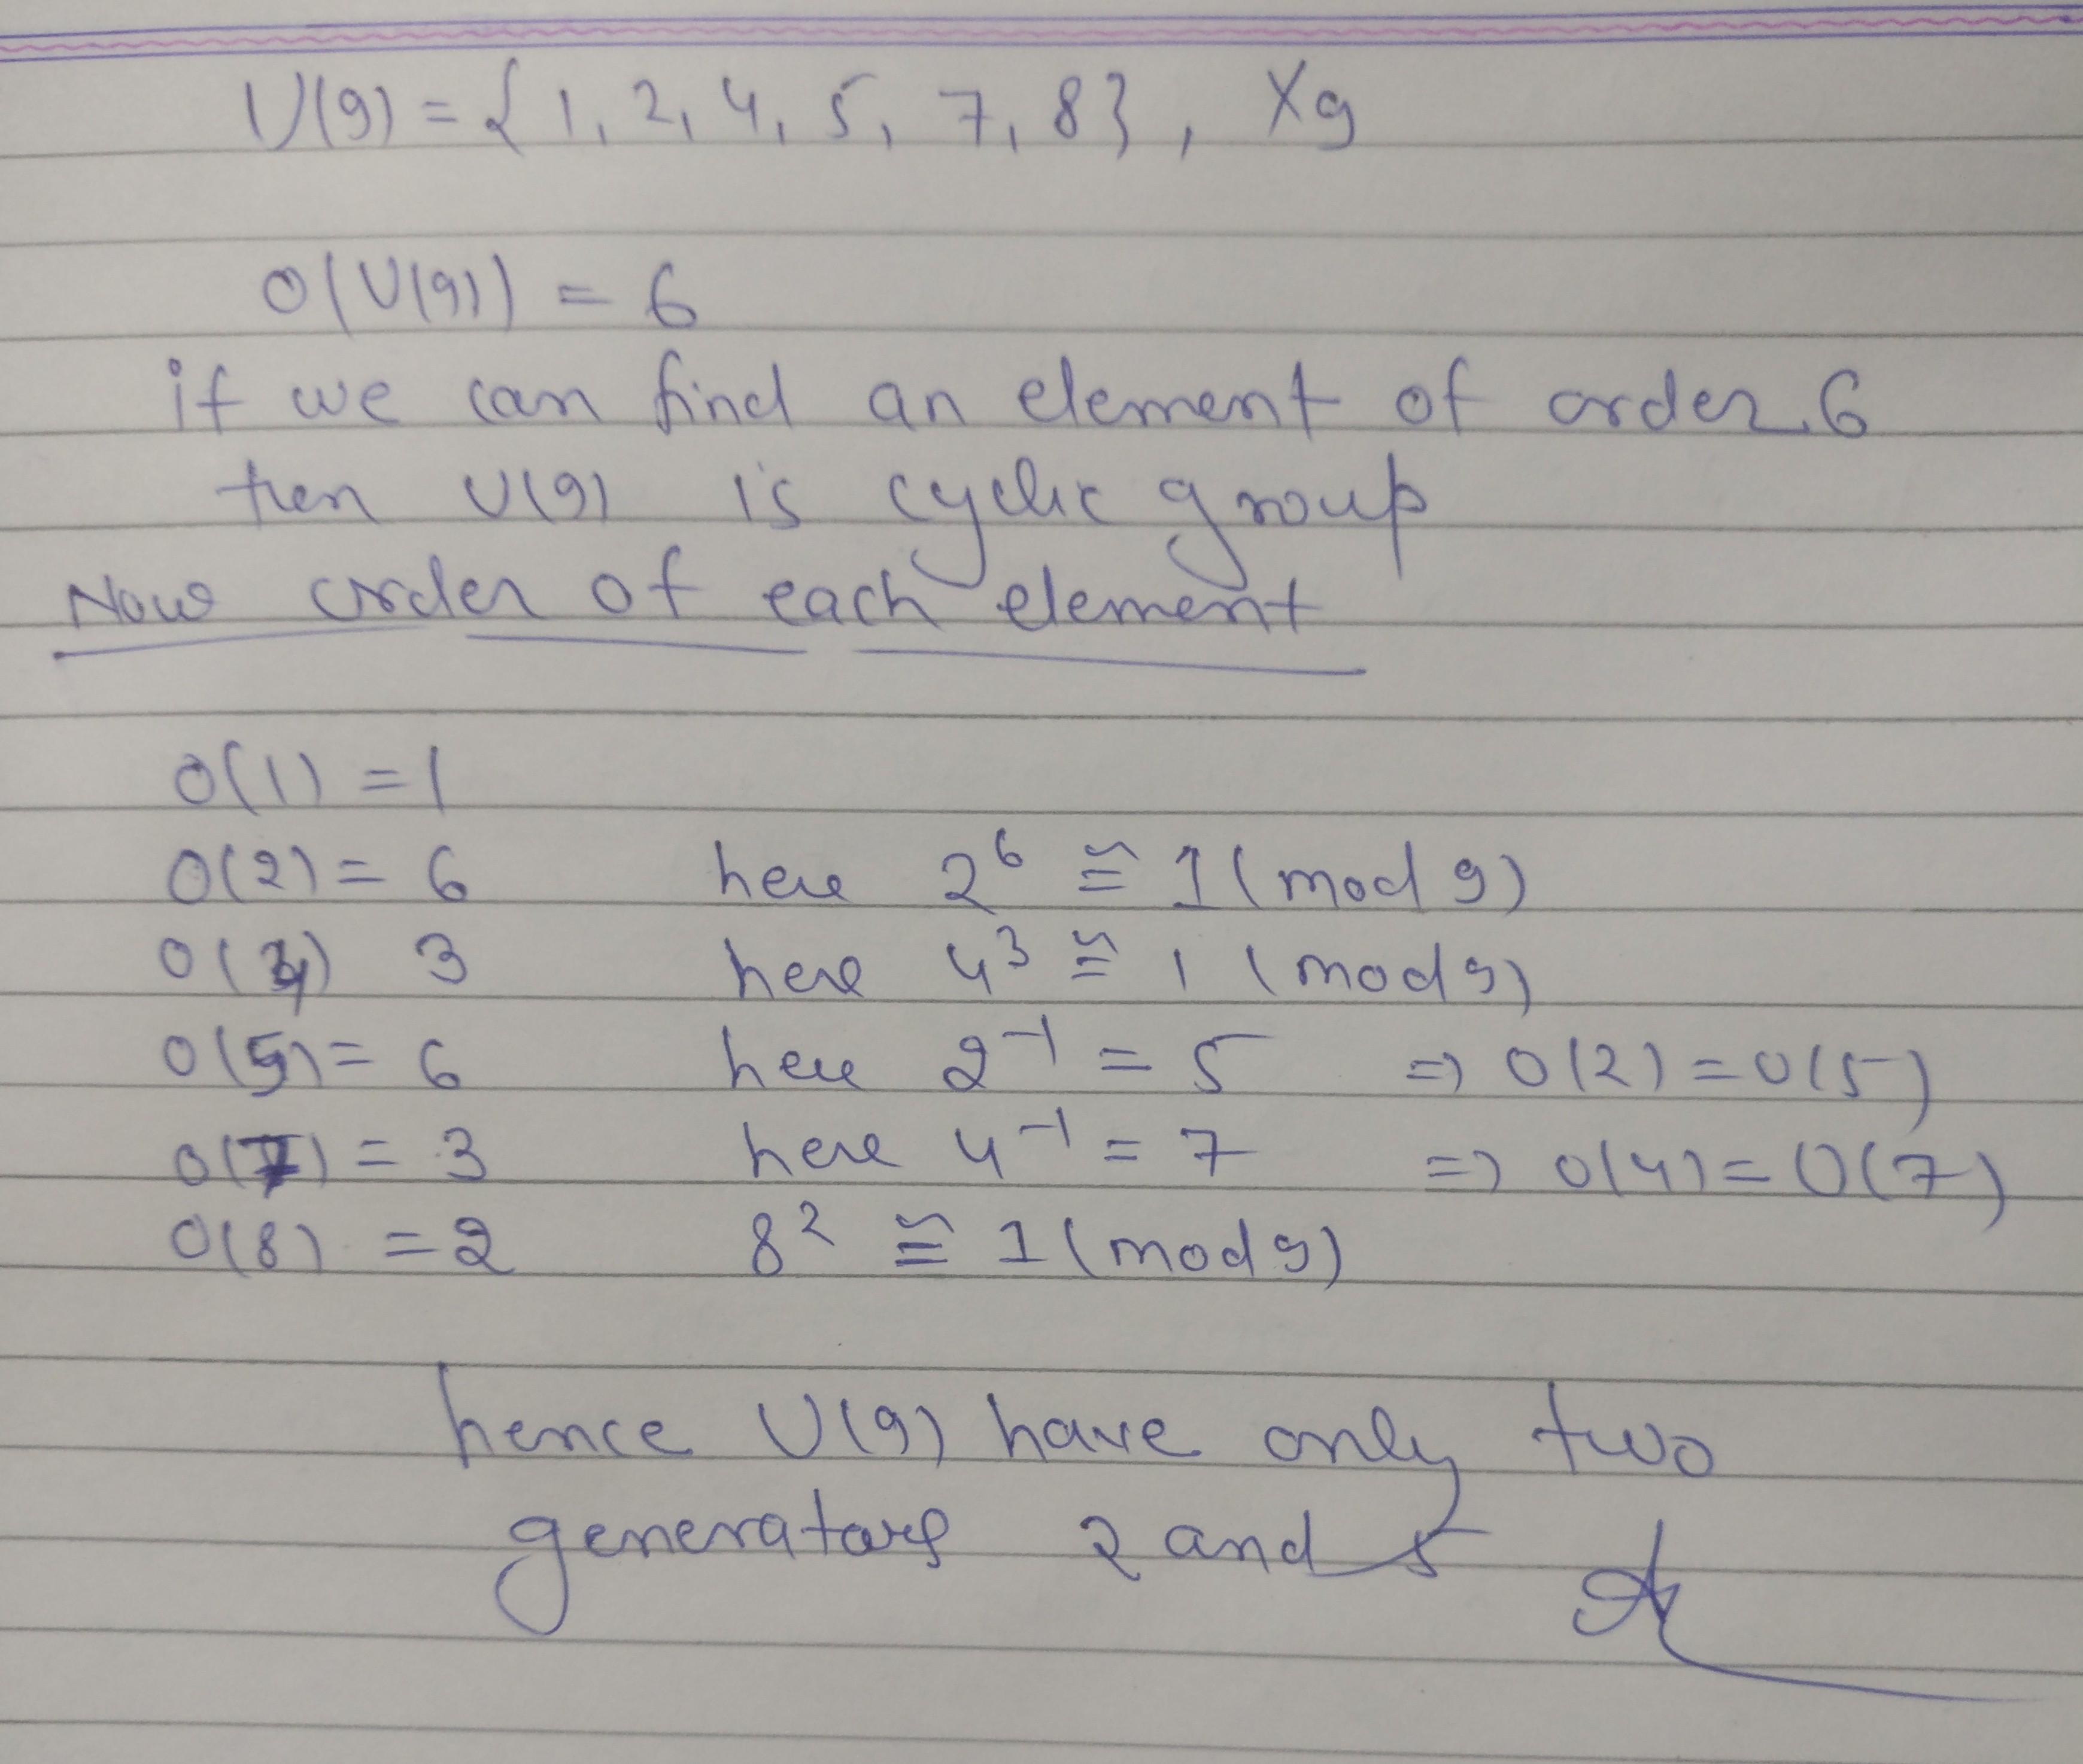 U(9) = { 1, 2, 4, 5, 7, 8 } , X9
O(U(9)) = 6
if we can find an element of order 6
then U(9) is cyclic group
Now order of each element
O(1) = 1
O(2) = 6 here 2⁶ ≅ 1 (mod 9)
O(4) 3 here 4³ ≅ 1 (mod 9)
O(5) = 6 here 2⁻¹ = 5 => O(2) = O(5)
O(7) = 3 here 4⁻¹ = 7 => O(4) = O(7)
O(8) = 2 8² ≅ 1 (mod 9)
hence U(9) have only two
generators 2 and 5